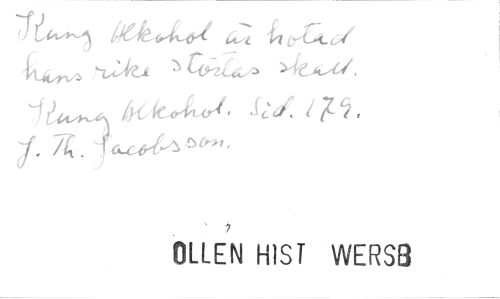 Kung Alkohol är hotad
hans rike störtas skall.
Kung Alkohol. Sid. 179.
J. Th. Jacobsson.
OLLÉN HIST WERSB